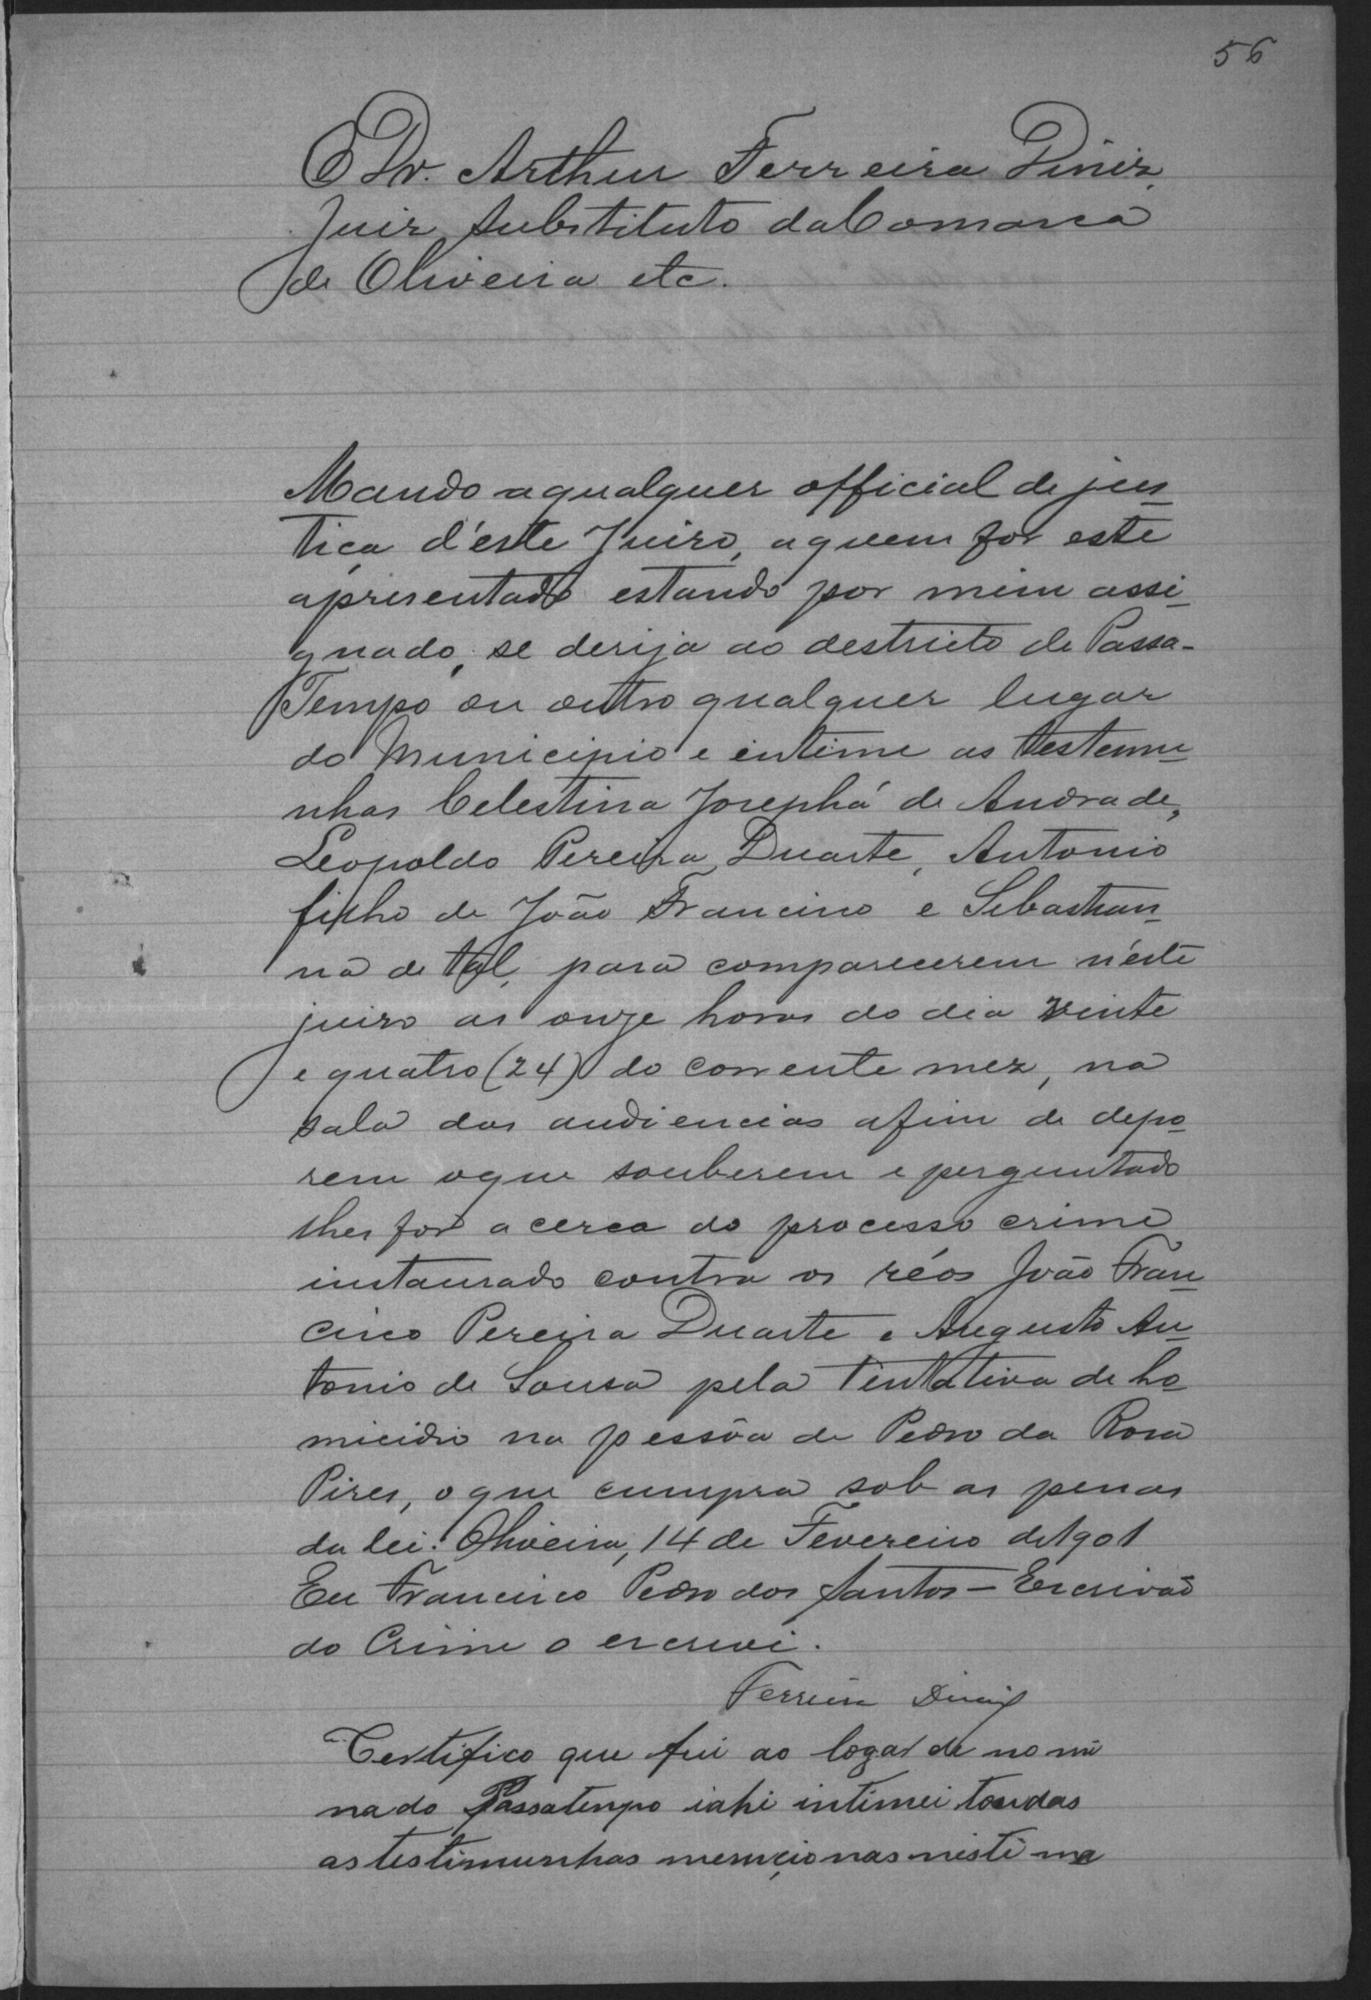 56
O Dr. Arthur Ferreira Diniz,
Juiz Substituto da Comarca
de Oliveira etc.
Mando a qualquer official de jus-
tiça d'este Juizo, a quem for este
apresentado estando por mim assi-
gnado, se derija ao destricto de Passa-
Tempo ou outro qualquer lugar
do Municipio e intime as testemu-
nhas Celestina Josephá de Andrade,
Leopoldo Pereira Duarte, Antonio
filho de João Francisco e Sebastian-
na de tal, para comparecerem n'éste
juizo as onze horas do dia vinte
e quatro (24) do corrente mez, na
sala das audiencias afim de depo-
rem oque souberem e perguntado
lhes for a cerca do processo crime
instaurado contra os réos João Fran-
cisco Pereira Duarte e Augusto An-
tonio de Sousa pela tentativa de ho-
micidio na pessôa de Pedro da Rosa
Pires, o que cumpra sob as penas
da lei. Oliveira, 14 de Fevereiro de 1901
Eu Francisco Pedro dos Santos - Escrivão
do Crime o escrevi.
Ferreira Diniz
Certifico que fui ao logar de nomi
nado Passatempo iahi intimei toudas
as testimunhas mencionas nisti ma